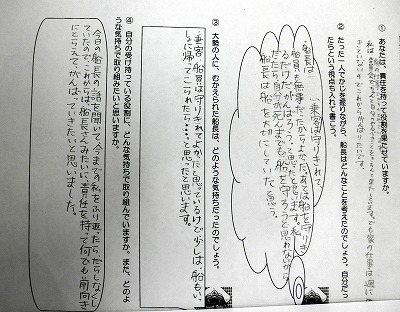 ① あなたは、責任を持って役割を果たせていますか。
私は
でも家の仕事は週に
きていないのでこれからがんばりたいです。
② たった一人でかじを握りながら、船長はどんなことを考えたのでしょう。自分だっ
たらという視点も入れて書こう。
船長は
乗客は守りきれて、
船員も無事だったからよかった。あとは船を守りき
るだけだががんばろう。と思っていたと思います。私
だったら、自分が死んでまでも船を守ろうと思わないから
船長は船を大切にしていたと思う。
③ 大勢の人に、むかえられた船長は、どのような気持ちだったのでしょう。
乗客、船員は守りきれてよかったと思っているけど少しは、船もいっ
しょに帰ってこられたら・・・。と思ったと思います。
④ 自分の受け持っている役割に、どんな気持ちで取り組んでいますか。また、どのよ
うな気持ちで取り組みたいと思いますか。
今日の船長の話を聞いて、今までの私をふり返ったらだらしなくし
ていたので、これからは船長さんみたいに、責任を持って何でも前向き
にとらえて、がんばっていきたいと思いました。